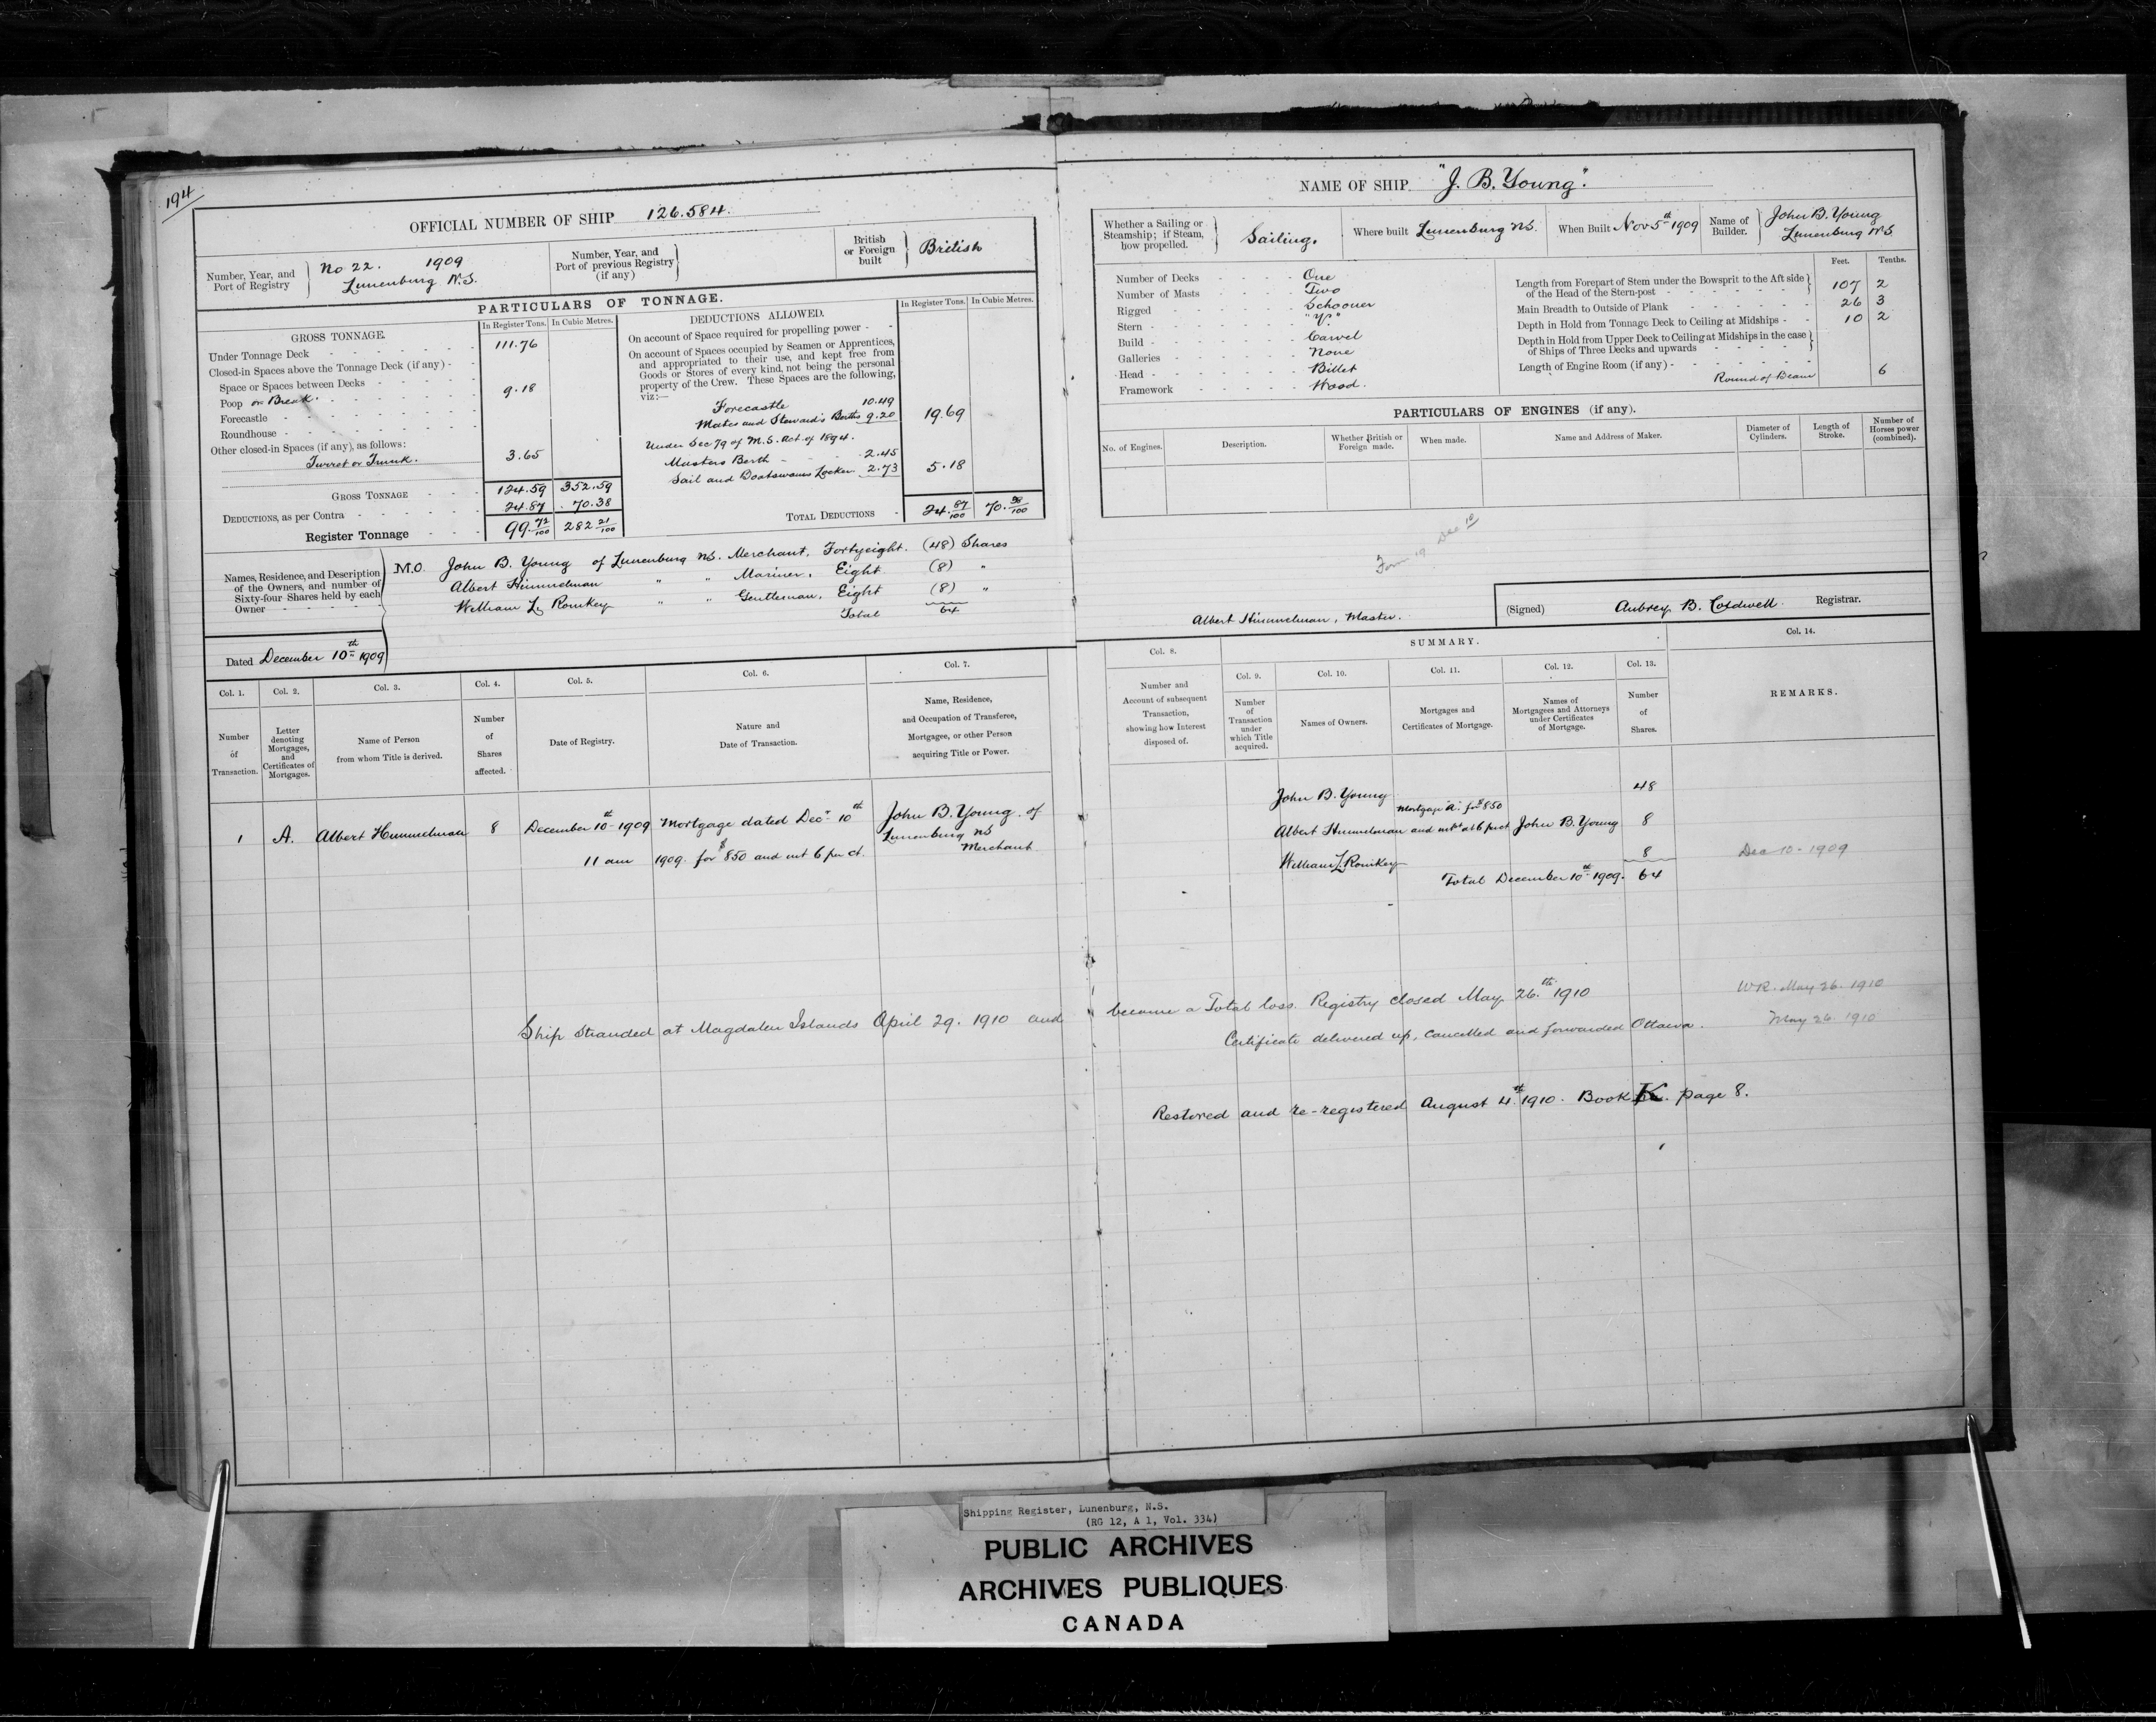 194
OFFICIAL NUMBER OF SHIP 126.584.
Number, Year, and Port of Registry
No 22. 1909
Lunenburg N.S.
Number, Year, and Port of previous Registry (if any)
British or Foreign built
British
PARTICULARS OF TONNAGE.
GROSS TONNAGE.
In Register Tons. In Cubic Metres.
Under Tonnage Deck 111.76
Closed-in Spaces above the Tonnage Deck (if any)
Space or Spaces between Decks
Poop or Break. 9.18
Forecastle
Roundhouse
Other closed-in Spaces (if any), as follows:
Turret or Trunk. 3.65
GROSS TONNAGE 124.59 352.59
DEDUCTIONS, as per Contra 24.87 70.38
Register Tonnage 99.72/100 282 21/100
DEDUCTIONS ALLOWED.
In Register Tons. In Cubic Metres.
On account of Space required for propelling power
On account of Spaces occupied by Seamen or Apprentices,
and appropriated to their use, and kept free from
Goods or Stores of every kind, not being the personal
property of the Crew. These Spaces are the following,
viz:—
Forecastle 10.49
Mates and Steward's Berths 9.20 19.69
Under Sec 79 of M.S. Act of 1894.
Masters Berth 2.45
Sail and Boatswains Locker 2.73 5.18
TOTAL DEDUCTIONS 24.87/100 70.38/100
Names, Residence, and Description
of the Owners, and number of
Sixty-four Shares held by each
Owner
M.O. John B. Young of Lunenburg NS. Merchant, Fortyeight. (48) Shares
Albert Himmelman " " Mariner, Eight (8) "
William L. Romkey " " Gentleman, Eight (8) "
Total 64
Dated December 10th 1909
NAME OF SHIP "J. B. Young".
Whether a Sailing or Steamship; if Steam, how propelled.
Sailing.
Where built Lunenburg NS.
When Built Nov 5th 1909
Name of Builder.
John B. Young
Lunenburg N.S.
Number of Decks One
Number of Masts Two
Rigged Schooner
Stern "V."
Build Carvel
Galleries None
Head Billet
Framework Wood.
Feet. Tenths.
Length from Forepart of Stem under the Bowsprit to the Aft side
of the Head of the Stern-post 107 2
Main Breadth to Outside of Plank 26 3
Depth in Hold from Tonnage Deck to Ceiling at Midships 10 2
Depth in Hold from Upper Deck to Ceiling at Midships in the case
of Ships of Three Decks and upwards
Length of Engine Room (if any)
Round of Beam 6
PARTICULARS OF ENGINES (if any).
No. of Engines.
Description.
Whether British or Foreign made.
When made.
Name and Address of Maker.
Diameter of Cylinders.
Length of Stroke.
Number of Horses power (combined).
Form 19 Dec 10
Albert Himmelman, Master.
(Signed) Aubrey B. Coldwell Registrar.
Col. 1. Col. 2. Col. 3. Col. 4. Col. 5. Col. 6. Col. 7.
Number of Transaction.
Letter denoting Mortgages, and Certificates of Mortgages.
Name of Person from whom Title is derived.
Number of Shares affected.
Date of Registry.
Nature and Date of Transaction.
Name, Residence, and Occupation of Transferee, Mortgagee, or other Person acquiring Title or Power.
Col. 8.
Number and Account of subsequent Transaction, showing how Interest disposed of.
SUMMARY.
Col. 9. Col. 10. Col. 11. Col. 12. Col. 13.
Number of Transaction under which Title acquired.
Names of Owners.
Mortgages and Certificates of Mortgage.
Names of Mortgagees and Attorneys under Certificates of Mortgage.
Number of Shares.
Col. 14.
REMARKS.
1 A. Albert Himmelman 8 December 10th 1909 Mortgage dated Decr 10th John B. Young of
Lunenburg NS
11 am 1909. for $850 and int 6 per ct. Merchant
John B. Young 48
Mortgage "A" for $850
Albert Himmelman and intst at 6 pr ct John B. Young 8
William L. Romkey 8
Total December 10th 1909. 64
Dec 10 - 1909
Ship stranded at Magdalen Islands April 29. 1910 and become a Total loss. Registry closed May 26th 1910
Certificate delivered up, cancelled and forwarded Ottawa.
WR. May 26. 1910
May 26. 1910
Restored and re-registered August 4th 1910. Book K. page 8.
Shipping Register, Lunenburg, N.S.
(RG 12, A 1, Vol. 334)
PUBLIC ARCHIVES
ARCHIVES PUBLIQUES
CANADA